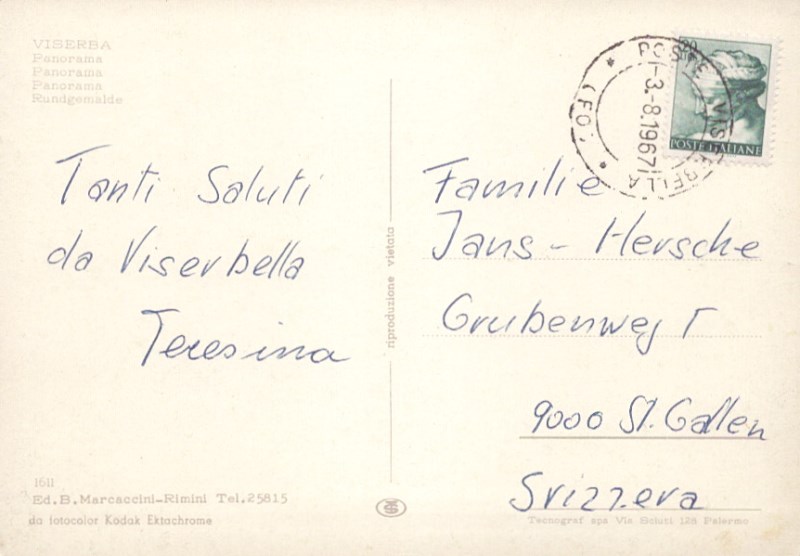 VISERBA
Panorama
Panorama
Panorama
Rundgemälde
Tanti Saluti
da Viserbella
Teresina
1611
Ed.B.Marcaccini-Rimini Tel.25815
da fotocolor Kodak Ektachrome
riproduzione vietata
POSTE VISERBELLA
(FO)
-3.-8.1967
POSTE ITALIANE
Familie
Jans - Hersche
Grubenweg
9000 St. Gallen
Svizzera
Tecnograf spa Via Sciuti 128 Palermo